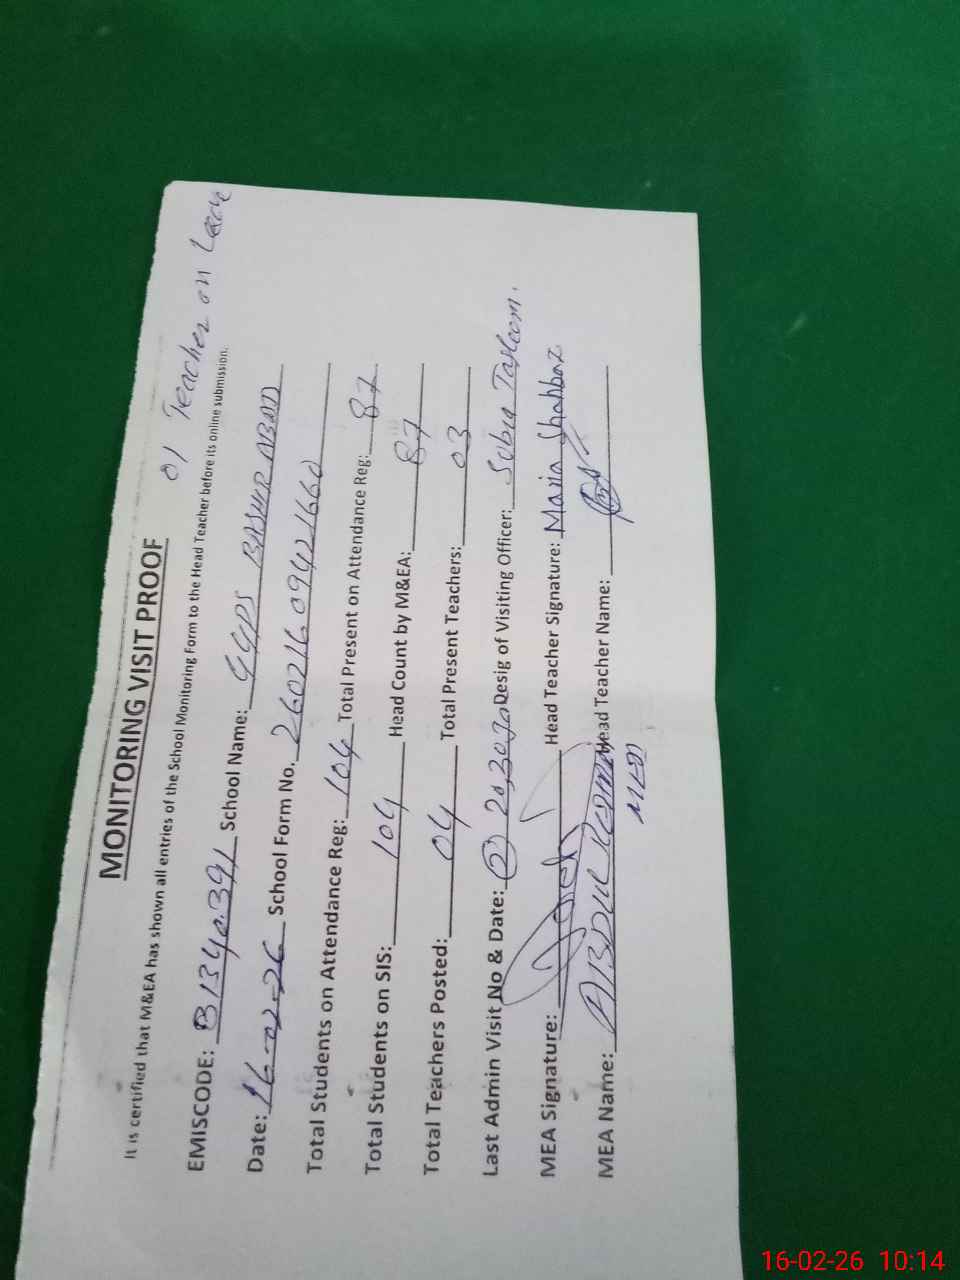 MONITORING VISIT PROOF
01 Teacher on Leave
It is certified that M&EA has shown all entries of the School Monitoring Form to the Head Teacher before its online submission.
EMISCODE: School Name: GGPS
Date: 16-02-26 School Form No.
Total Students on Attendance Reg: 104 Total Present on Attendance Reg: 87
Total Students on SIS: 104 Head Count by M&EA: 87
Total Teachers Posted: 04 Total Present Teachers: 03
Last Admin Visit No & Date: (2) Desig of Visiting Officer:
MEA Signature: Head Teacher Signature: Maria Shahbaz
MEA Name: ABDUL Head Teacher Name:
16-02-26 10:14